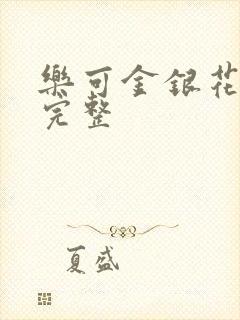 樂可金銀花
完整
夏盛